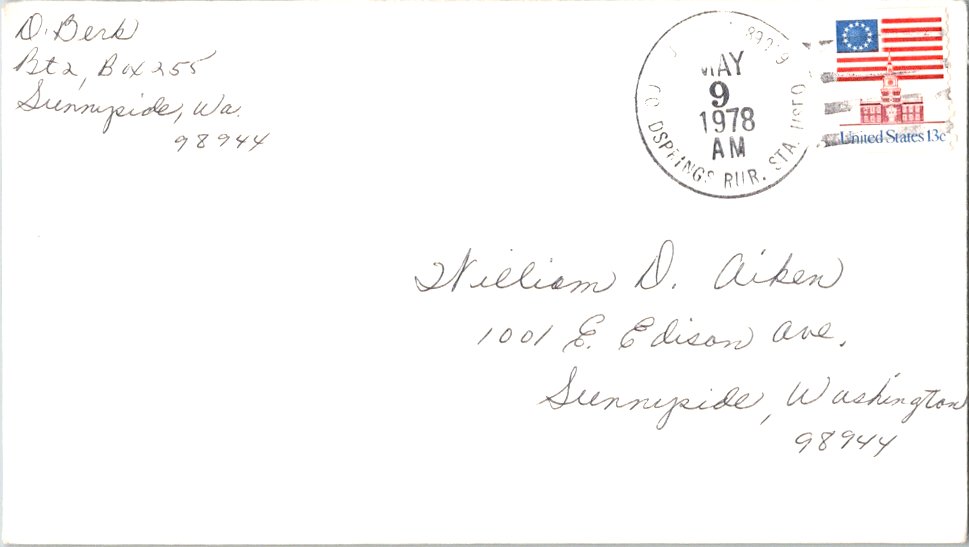 D. Berk
Rt 2, Box 255
Sunnyside, Wa.
98944
MAY
9
1978
AM
RUR. STA.
United States 13c
William D. Aiken
1001 E. Edison Ave.
Sunnyside, Washington
98944